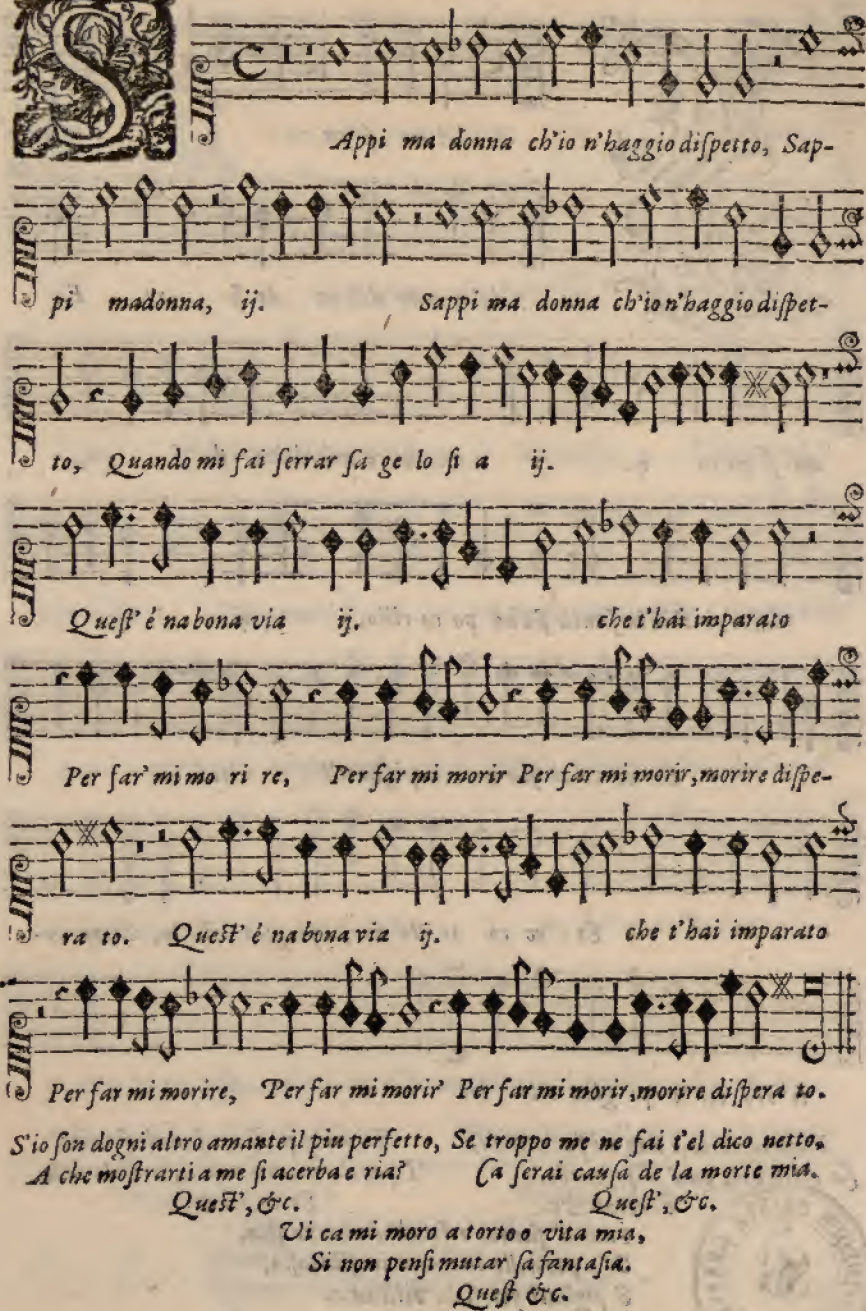 S
Appi ma donna ch'io n'haggio diſpetto, Sap-
pi madonna, ij. Sappi ma donna ch'io n'haggio diſpet-
to, Quando mi fai ſerrar ſa ge lo ſi a ij.
Queſt' é na bona via ij. che t'hai imparato
Per far' mi mo ri re, Per far mi morir Per far mi morir, morire diſpe-
ra to. Queſt' é na bona via ij. che t'hai imparato
Per far mi morire, Per far mi morir' Per far mi morir, morire diſpera to.
S'io ſon dogni altro amante il piu perfetto, Se troppo me ne fai t'el dico netto,
A che moſtrarti a me ſi acerba e ria? Ca ſerai cauſa de la morte mia.
Queſt', &c. Queſt', &c.
Vi ca mi moro a torto o vita mia,
Si non penſi mutar ſa fantaſia.
Queſt &c.